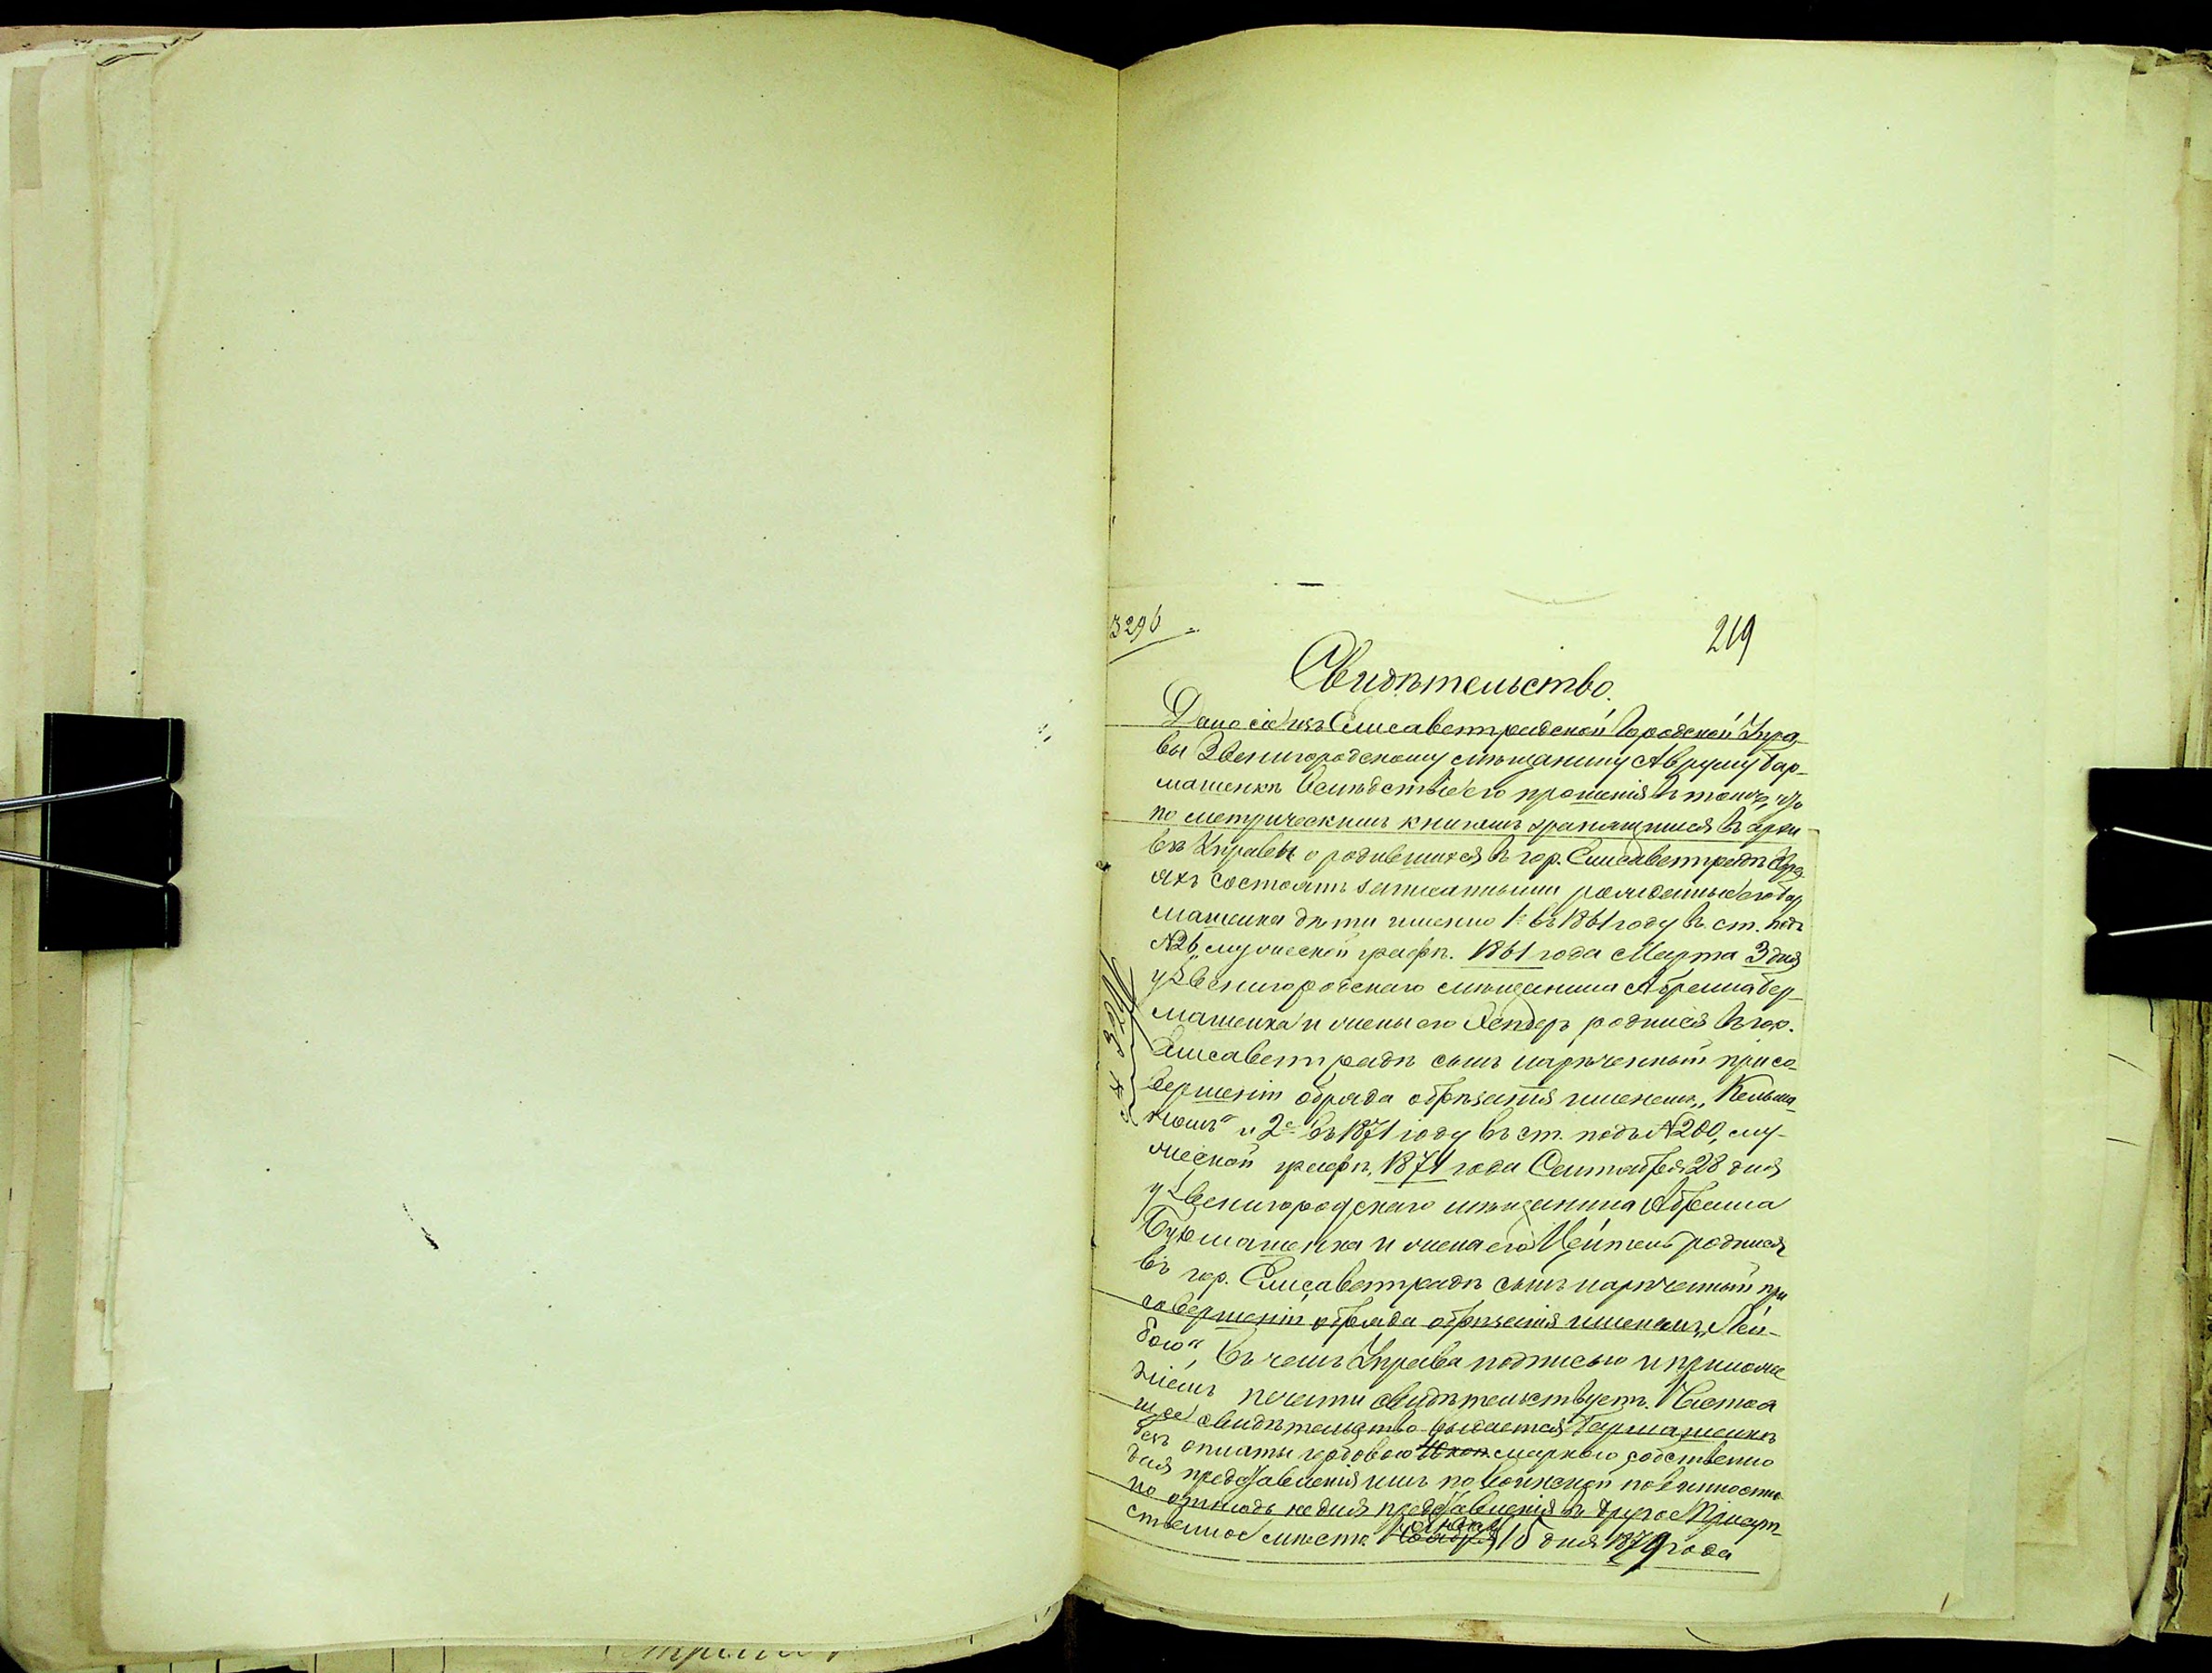 3296
219
Свидѣтельство.
Дано сіе изъ Елисаветградской Городской Упра-
вы Звенигородскому мѣщанину Авруму Бар-
машенкѣ вслѣдствіе его прошенія въ томъ, что
по метрическимъ книгамъ хранящимся въ архи-
вѣ Управы о родившихся въ гор. Елисаветградѣ Евре-
яхъ состоятъ записанными рожденные его Бар
машенка дѣти именно 1е въ 1861 году въ ст. подъ
№ 26, мужеской графѣ. 1861 года Марта 3 дня
у Звенигородскаго мѣщанина Абрама Бер-
машенка и жены его родился въ гор.
Елисаветградѣ сынъ нареченный при со-
вершеніи обряда обрѣзанія именемъ „Кельма-
номъ“ и 2е въ 1871 году въ ст. подъ № 200, му-
жеской графѣ, 1871 года Сентября 28 дня
у Звенигородскаго мѣщанина Абрама
Бурмашенка и жена его Нейтель родился
въ гор. Елисаветградѣ сынъ нареченный при
совершеніи обряда обрѣзанія именемъ „Лей-
бою“, въ чемъ Управа подписью и приложе
ніемъ печати свидѣтельствуетъ. Настоя
щее свидѣтельство выдается Бармашенкѣ
безъ оплаты гербовою 40 коп. маркою собственно
для представленія имъ по воинской повинности
но отнюдь не для представленія въ другое Присут-
ственное мѣсто. 15 дня 1879 года